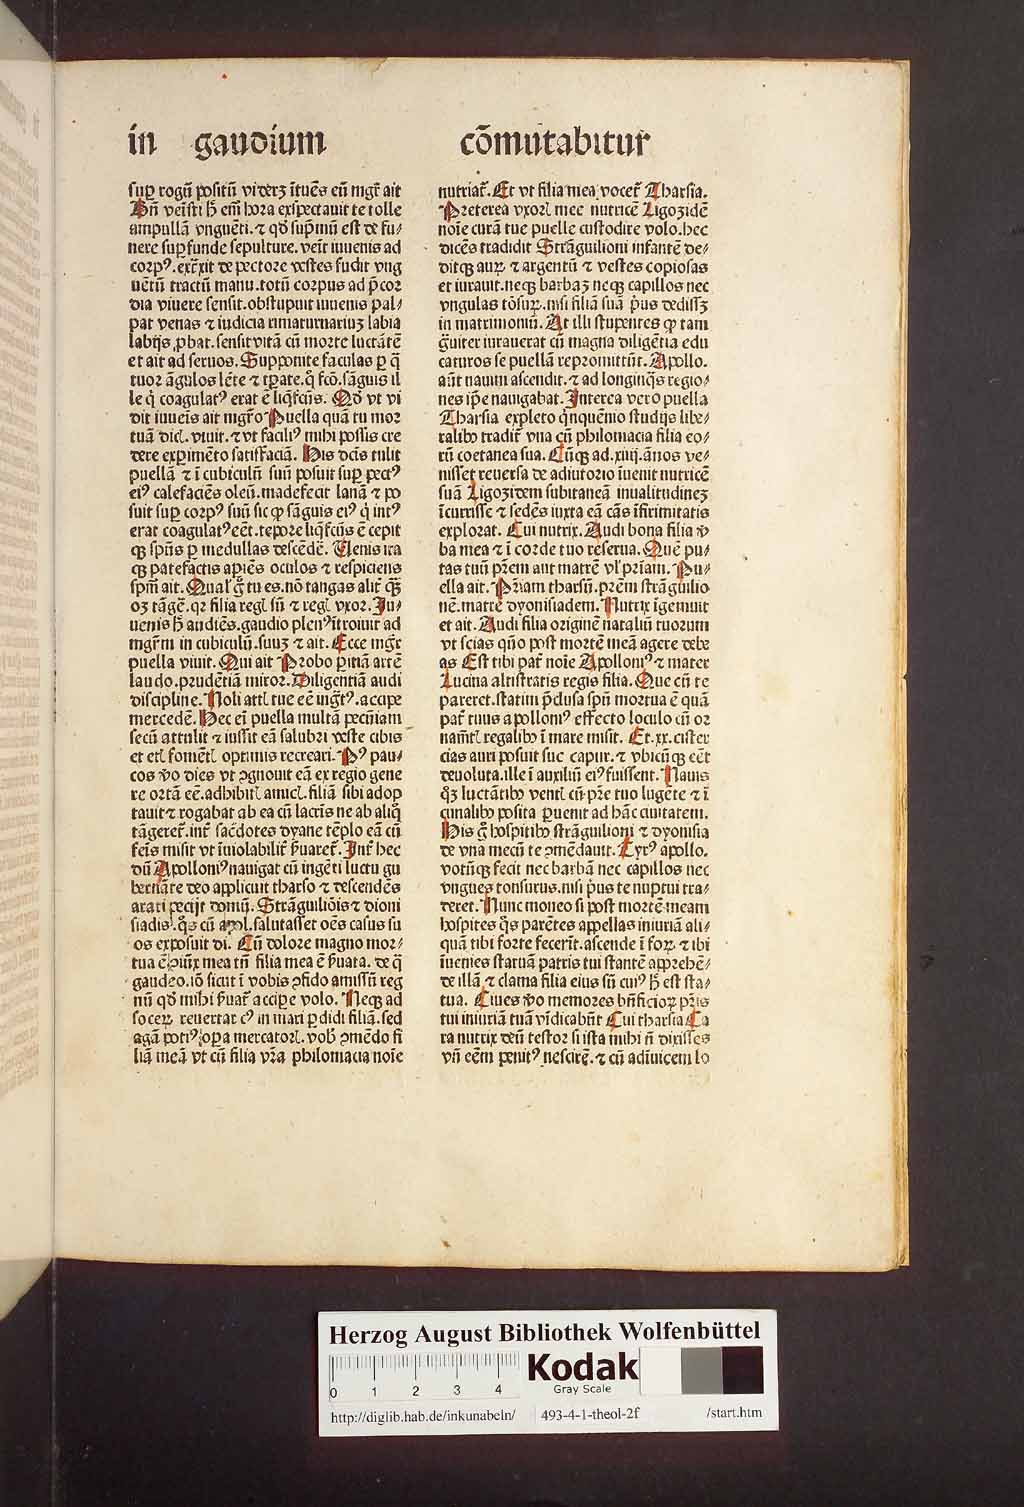 in gaudium cōmutabitur
suꝑ rogū positū viderꝫ ītuēs eū mgr̄ ait
Bn̄ veīsti h̄ em̄ hora exspectauit te tolle
ampullā vnguēti. ⁊ qd̓ sup̄mū est de fu⸗
nere suꝑfunde sepulture. veīt iuuenis ad
corpꝰ. extr̄xit de pectore vestes fudit vng
uētū tractū manu. totū corpus ad p̄cor
dia viuere sensit. obstupuit iuuenis pal⸗
pat venas ⁊ iudicia rimaturnariuꝫ labia
labijs ꝓbat. sensit vitā cū morte luctātē
et ait ad seruos. Supponite faculas ꝑ q̄
tuor āgulos lēte ⁊ tꝑate. q̊ fcō. sāguis il
le q̇ coagulatꝰ erat ē liq̄fcūs. Qd̓ vt vi
dit iuueīs ait mgr̄o Puella quā tu mor
tuā dicl. viuit. ⁊ vt faciliꝰ mihi possis cre
dere experimēto satisfaciā. His dcīs tulit
puellā ⁊ ī cubiculū suū posuit suꝑ pectꝰ
eiꝰ calefaciēs oleū. madefecit lanā ⁊ po
suit suꝑ corpꝰ suū sic ꝙ sāguis eiꝰ q̇ intꝰ
erat coagulatꝰ eēt. tepore liq̄fcūs ē cepit
qꝫ spūs ꝑ medullas descēdē. Venis ita
qꝫ patefactis apiēs oculos ⁊ respiciens
spm̄ ait. Qual̓ g̊ tu es. nō tangas alit̄ qꝫ̄
oꝫ tāgē. qꝛ filia regl sū ⁊ regl vxor. Ju⸗
uenis h̄ audiēs. gaudio plenꝰ ītroiuit ad
mgr̄m in cubiculū. suuꝫ ⁊ ait. Ecce mgr̄
puella viuit. Qui ait Probo ꝑitiā artē
laudo. prudētiā miror. Diligentiā audi
discipline. Noli attl tue eē ingt̄ꝰ. accipe
mercedē. Hec eī puella multā pecūiam
secū attulit ⁊ iussit eā salubri veste cibis
et etl fomētl optimis recreari. Pꝰ pau⸗
cos v̊o dies vt ꝯgnouit eā ex regio gene
re ortā eē. adhibitl amicl. filiā sibi adop
tauit ⁊ rogabat ab ea cū lacrīs ne ab aliq̊
tāgeret̄. int̄ sac̄dotes dyane tēplo eā cū
feīs misit vt īuiolabilit̄ ẜuaret̄. Int̄ hec
dū Apolloniꝰ nauigat cū ingēti luctu gu
bernāte deo applicuit tharso ⁊ descendēs
arati pecijt domū. Strāguiliōis ⁊ dioni
siadis. q̊s cū apol. salutasset oēs casus su
os exposuit di. Cū dolore magno mor⸗
tua ē ꝓiux mea tn̄ filia mea ē ẜuata. de q̄
gaudeo. iō sicut ī vobis ꝯfido amissū reg
nū qd̓ mihi ẜuat̄ accipe volo. Neqꝫ ad
soceꝝ reuertar cꝰ in mari ꝑdidi filiā. sed
agā potiꝰ oꝑa mercatorl. vob̄ ꝯmēdo fi
liā meā vt cū filia vr̄a philomacia noīe
nutriat̄. Et vt filia mea vocet̄ Tharsia.
Preterea vxorl mee nutricē Ligozidē
noīe curā tue puelle custodire volo. hec
dicēs tradidit Strāguilioni infantē de⸗
ditqꝫ auꝝ ⁊ argentū ⁊ vestes copiosas
et iurauit. neqꝫ barbaꝫ neqꝫ capillos nec
vngulas tōsuꝝ. nisi filiā suā p̓us dedissꝫ
in matrimoniū. At illi stupentes ꝙ tam
ḡuiter iurauerat cū magna diligētia edu
caturos se puellā repromittūt. Apollo.
aūt nauim ascendit. ⁊ ad longinq̄s regio⸗
nes ip̄e nauigabat. Interea vero puella
Tharsia expleto q̇nquēnio studijs libe⸗
ralibꝰ tradit̄ vna cū philomacia filia eo⸗
rū coetanea sua. Cūqꝫ ad. xiiij. ānos ve⸗
nisset reuersa de adiutorio īuenit nutricē
suā Ligozidem subitaneā inualitudineꝫ
īcurrisse ⁊ sedēs iuxta eā cās īfirmitatis
explorat. Cui nutrix. Audi bona filia v̓
ba mea ⁊ ī corde tuo reserua. Quē pu⸗
tas tuū pr̄em aut matrē vl̓ pr̄iam. Pu⸗
ella ait. Pr̄iam tharsū. pr̄em strāguilio
nē. matrē dyonisiadem. Nutrix īgemuit
et ait. Audi filia originē nataliū tuorum
vt scias qn̄o post mortē meā agere debe
as Est tibi pat̄ noīe Apolloniꝰ ⁊ mater
Lucina altistratis regis filia. Que cū te
pareret. statim p̄clusa spū mortua ē quā
pat̄ tuus apolloniꝰ effecto loculo cū or
namētl regalibꝰ ī mare misit. Et. xx. cister
cias auri posuit suꝑ caput. ⁊ vbicūqꝫ eēt
deuoluta. ille ī auxiliū eiꝰ fuissent. Nauis
q̊ꝫ luctātibꝰ ventl cū pr̄e tuo lugēte ⁊ ī
cunalibꝰ posita ꝑuenit ad hāc ciuitatem.
His g̊ hospitibꝰ strāguilioni ⁊ dyonisia
de vna mecū te ꝯmēdauit. Tyrꝰ apollo.
votūqꝫ fecit nec barbā nec capillos nec
vngues tonsurus. nisi p̓us te nuptui tra⸗
deret. Nunc moneo si post mortē meam
hospites q̊s parētes appellas iniuriā ali⸗
quā tibi forte fecerīt. ascende ī foꝝ. ⁊ ibi
īuenies statuā patris tui stantē apprehē⸗
de illā ⁊ clama filia eius sū cuiꝰ h̄ est sta⸗
tua. Ciues v̊o memores bn̄ficioꝝ pr̄is
tui iniuriā tuā vīdicabūt Cui tharsia Ca
ra nutrix deū testor si ista mihi n̄ dixisses
vn̄ eēm penitꝰ nescirē. ⁊ cū adīuicem lo
Herzog August Bibliothek Wolfenbüttel
0 1 2 3 4
Kodak
Gray Scale
http://diglib.hab.de/inkunabeln/ 493-4-1-theol-2f /start.htm